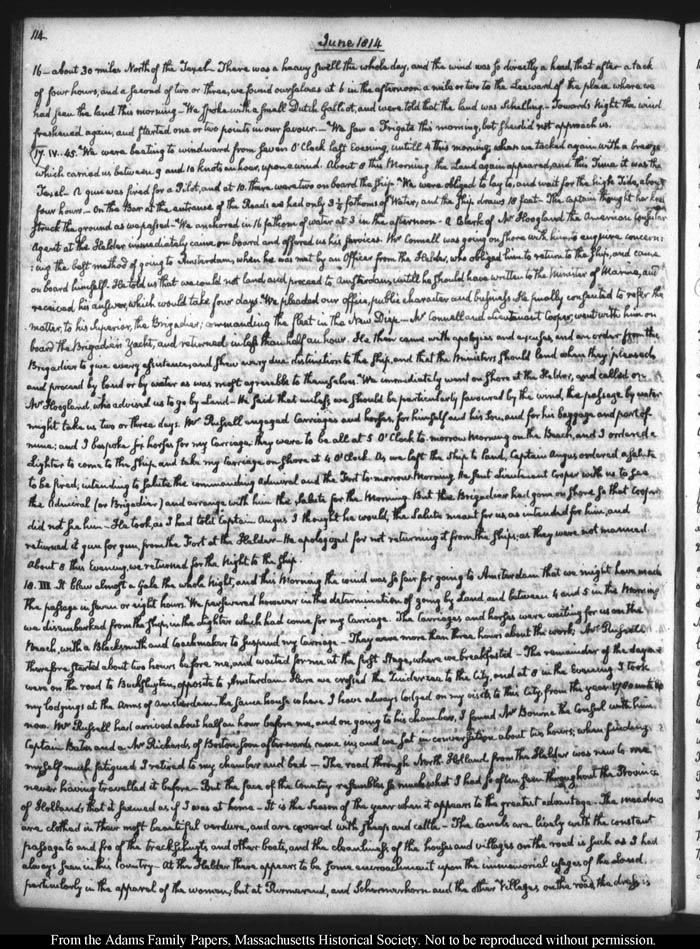 114.
June 1814
16— about 30 miles North of the Texel. There was a heavy swell the whole day, and the wind was so directly a head, that after a tack
of four hours, and a second of two or three, we found ourselves at 6 in the afternoon a mile or two to the Leeward of the place where we
had seen the land this morning— We spoke with a small Dutch Galliot, and were told that the land was Schelling— Towards Night the wind
freshened again, and started one or two points in our favour.— We saw a Frigate this morning, but she did not approach us.
17. IV. 45. We were beating to windward from seven O'Clock last Evening, untill 4 this morning when we tacked again with a breeze
which carried us between 9 and 10 knots an hour, upon a wind. About 8 this Morning the Land again appeared, and this time it was the
Texel. A gun was fired for a Pilot, and at 10. there were two on board the Ship. We were obliged to lay to, and wait for the high Tide, about
four hours— On the Bar at the entrance of the Roads we had only 3½ fathoms of Water, and the Ship draws 18 feet— The Captain thought her keel
struck the ground as we passed— We anchored in 16 fathom of water at 3 in the afternoon— A Clerk of Mr Hoogland the American Consular
Agent at the Helder immediately came on board and offered us his services. Mr Connell was going on shore with him to enquire concern:
:ing the best method of going to Amsterdam, when he was met by an Officer from the Helder, who obliged him to return to the Ship, and came
on board himself. He told us that we could not land and proceed to Amsterdam, untill he should have written to the Minister of Marine, and
received his answer, which would take four days. We pleaded our office, public character and business. He finally consented to refer the
matter, to his Superior, the Brigadier, commanding the fleet in the New Diep— Mr Connell and Lieutenant Cooper, went with him on
board the Brigadier's Yacht, and returned in less than half an hour. He then came with apologies and excuses, and an order from the
Brigadier to give every assistance, and shew every due distinction to the Ship, and that the Ministers should land when they pleased,
and proceed by land or by water as was most agreeable to themselves. We immediately went on shore at the Helder, and called on
Mr Hoogland, who advised us to go by Land— He said that unless we should be particularly favoured by the wind, the passage by water
might take us two or three days. Mr Russell engaged Carriages and horses, for himself and his Son, and for his baggage and part of
mine; and I bespoke six horses for my Carriage. they were to be all at 5 O'Clock to-morrow Morning on the Beach, and I ordered a
Lighter to come to the Ship and take my Carriage on shore at 4 O'Clock. As we left the Ship to land, Captain Angus ordered a salute
to be fired; intending to salute the commanding Admiral and the Fort to-morrow Morning. He sent Lieutenant Cooper with us to see
the Admiral (or Brigadier) and arrange with him the Salute for the Morning. But the Brigadier had gone on shore, so that Cooper
did not see him— He took, as I had told Captain Angus I thought he would, the Salute meant for us, as intended for him, and
returned it gun for gun, from the Fort at the Helder— He apologized for not returning it from the Ships, as they were not manned.
About 8 this Evening, we returned for the Night to the Ship.
18. III. It blew almost a Gale the whole Night, and this Morning the wind was so fair for going to Amsterdam that we might have made
the passage in seven or eight hours. We persevered however in the determination of going by Land, and between 4 and 5 in the Morning
we disembarked from the Ship, in the Lighter which had come for my Carriage. The Carriages and horses were waiting for us on the
Beach, with a Blacksmith and Coachmaker to suspend my Carriage— They were more than three hours about the work; Mr Russell
therefore started about two hours before me, and waited for me at the first Stage, where we breakfasted— The remainder of the day we
were on the road to Buiksloyten, opposite to Amsterdam. Here we crossed the Zuiderzee to the City, and at 8 in the Evening I took
my lodgings at the Arms of Amsterdam, the same house where I have always lodged on my visits to this City, from the year 1780 untill
now. Mr Russell had arrived about half an hour before me, and on going to his chamber, I found Mr Bourne the Consul with him.
Captain Bates and a Mr Richards of Boston, soon afterwards came in; and we sat in conversation about two hours; when finding
myself much fatigued I retired to my chamber and bed— The road through North-Holland from the Helder was new to me
never having travelled it before— But the face of the Country resembles so much what I had so often seen throughout the Province
of Holland, that it seemed as if I was at home— It is the Season of the year when it appears to the greatest advantage— The meadows
are clothed in their most beautiful verdure, and are covered with sheep and cattle— The Canals are lively with the constant
passage to and fro of the track Schuyts, and other boats, and the cleanliness of the houses and villages on the road is such as I had
always seen in this Country— At the Helder there appears to be some encroachment upon the immemorial usages of the
particularly in the apparel of the women, but at Purmerend, and Schermerhorn and the other Villages on the road, the dress is
From the Adams Family Papers, Massachusetts Historical Society. Not to be reproduced without permission.